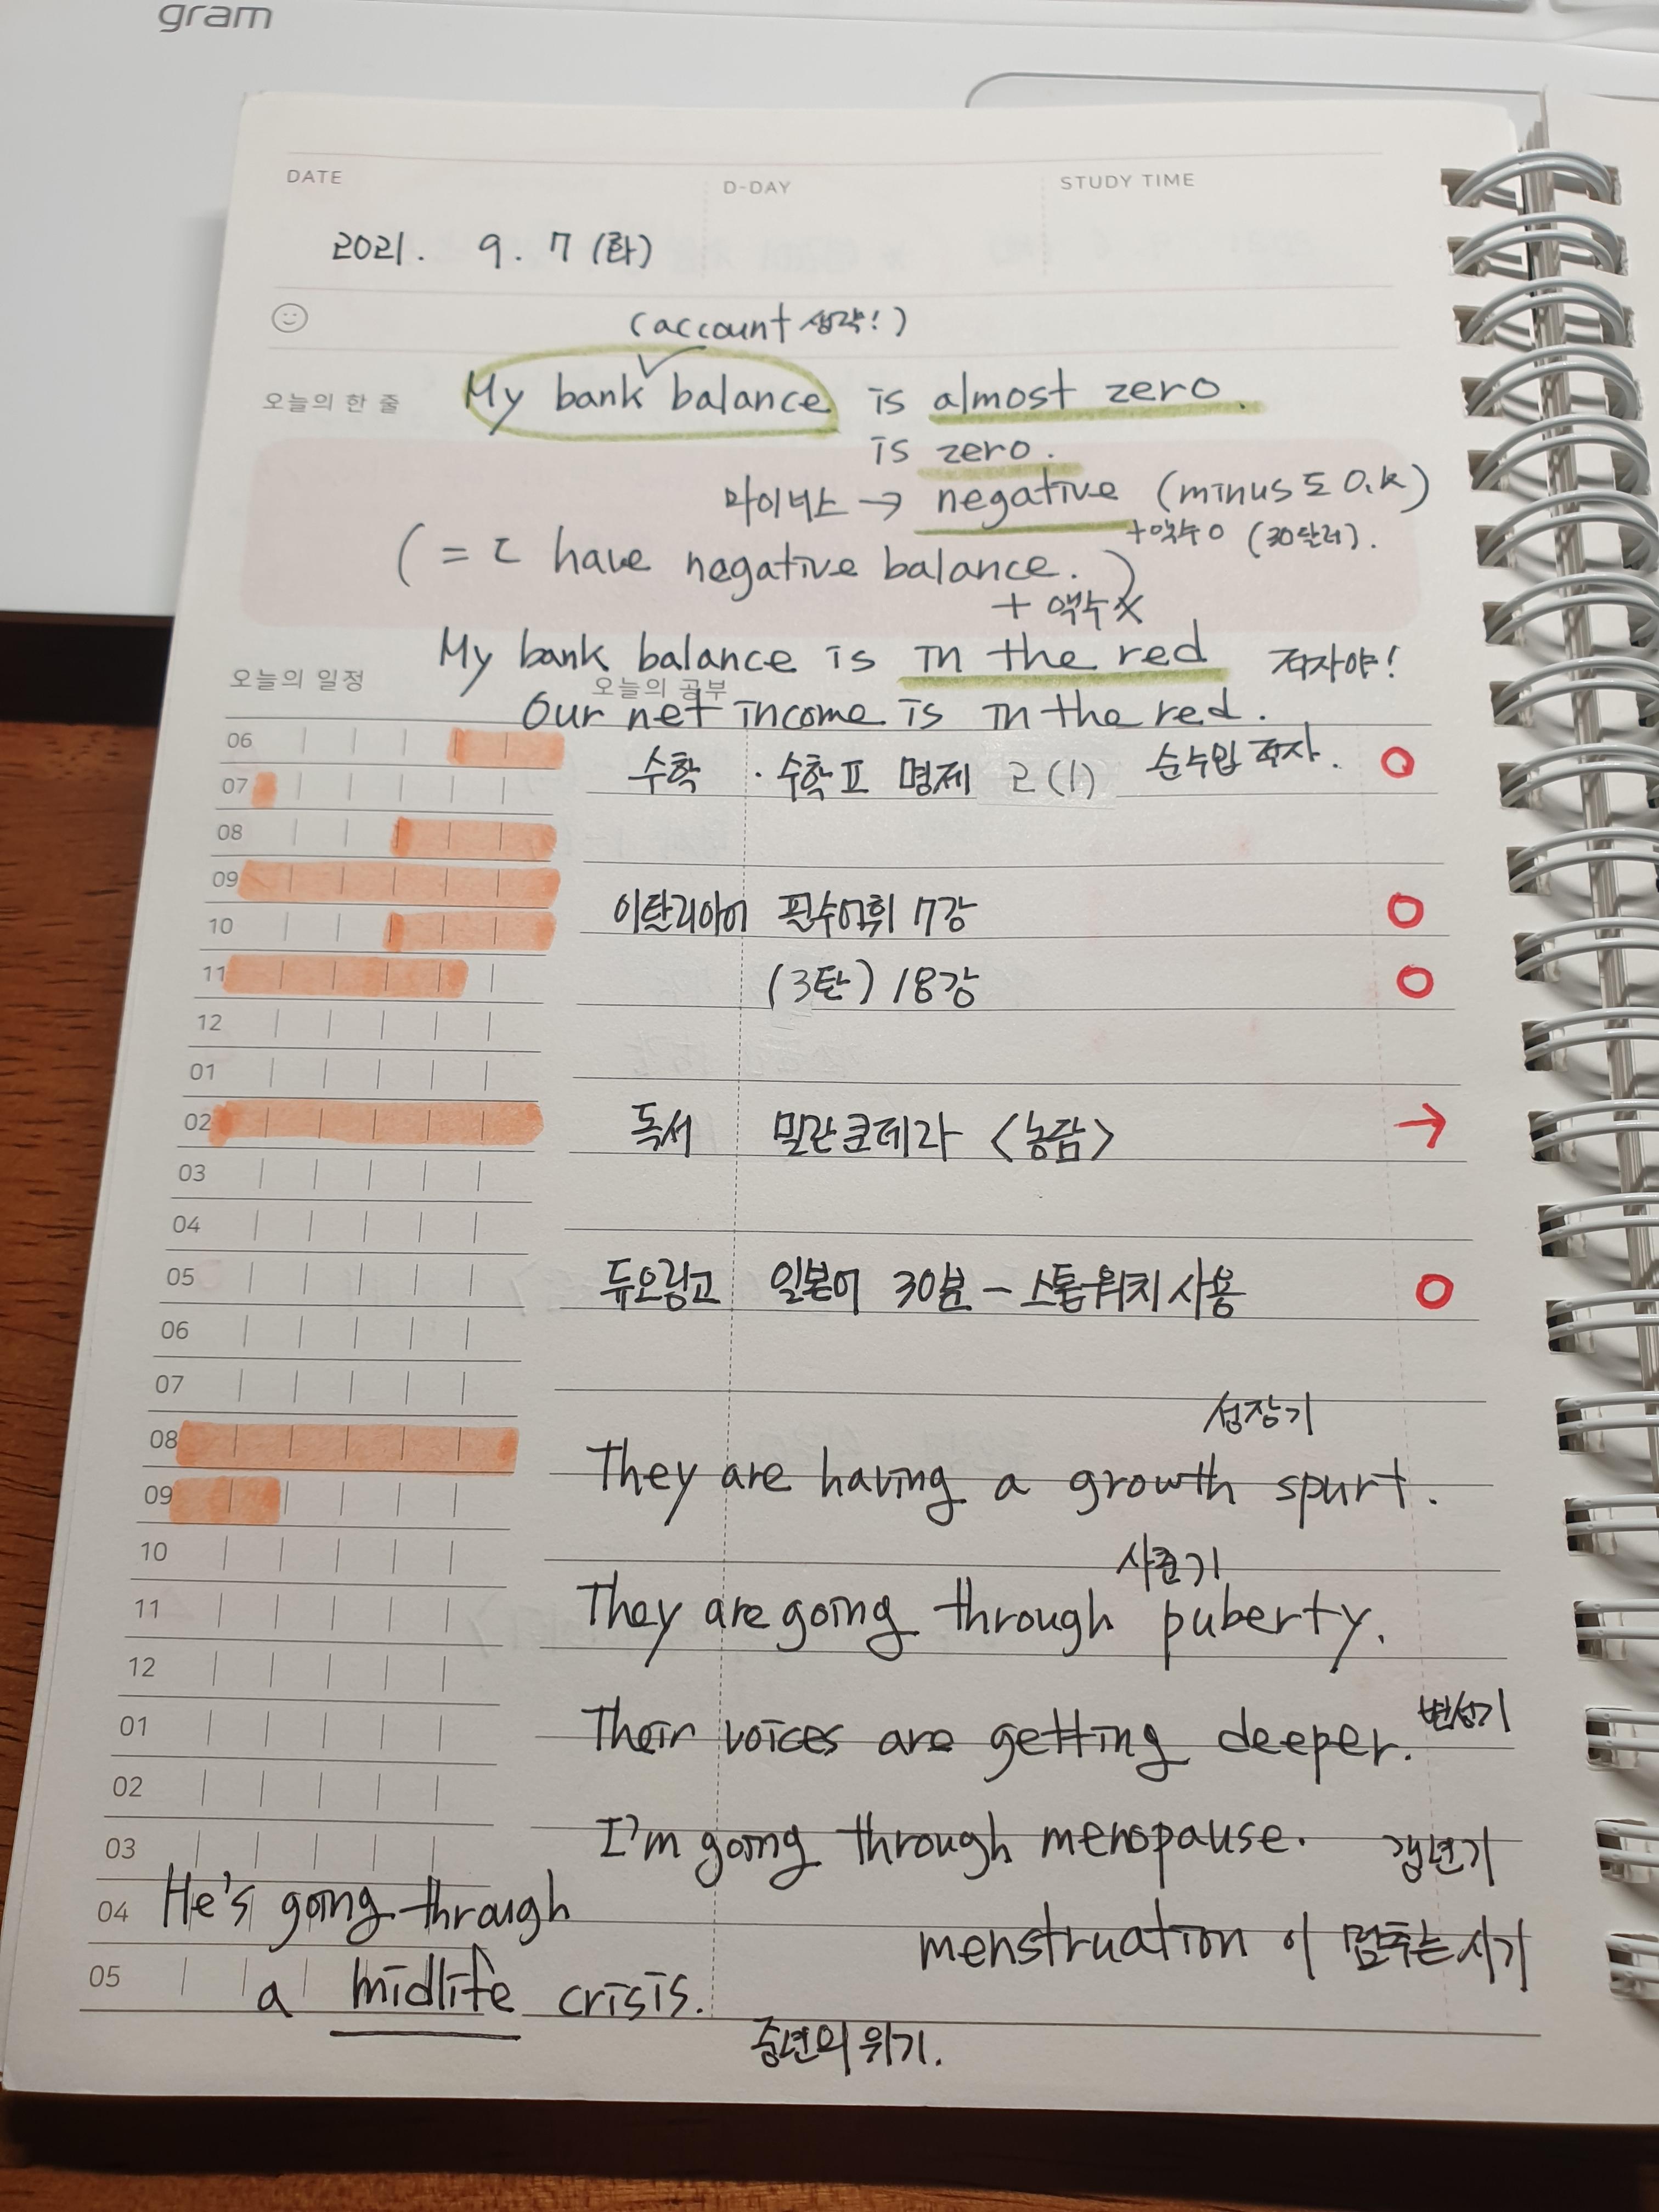 gram
DATE D-DAY STUDY TIME
2021. 9. 7 (화)
(account 생략!)
오늘의 한 줄 My bank balance is almost zero.
is zero.
마이너스 → negative (minus도 O.K)
+액수 O (30달러).
(= I have negative balance.)
+ 액수 X
My bank balance is in the red 적자야!
오늘의 일정 오늘의 공부
Our net income is in the red.
순수입 적자.
06 수학 · 수학Ⅱ 명제 2(1) O
07
08
09 이탈리아어 필수어휘 7강 O
10
11 (3탄) 18강 O
12
01
02 독서 밀란쿤데라 <농담> →
03
04
05 듀오링고 일본어 30분 - 스톱워치 사용 O
06
07
성장기
08 They are having a growth spurt.
09
사춘기
10
11 They are going through puberty.
12
01 Their voices are getting deeper. 변성기
02
03 I'm going through menopause. 갱년기
04 He's going through
menstruation이 멈추는 시기
05 a midlife crisis.
중년의 위기.